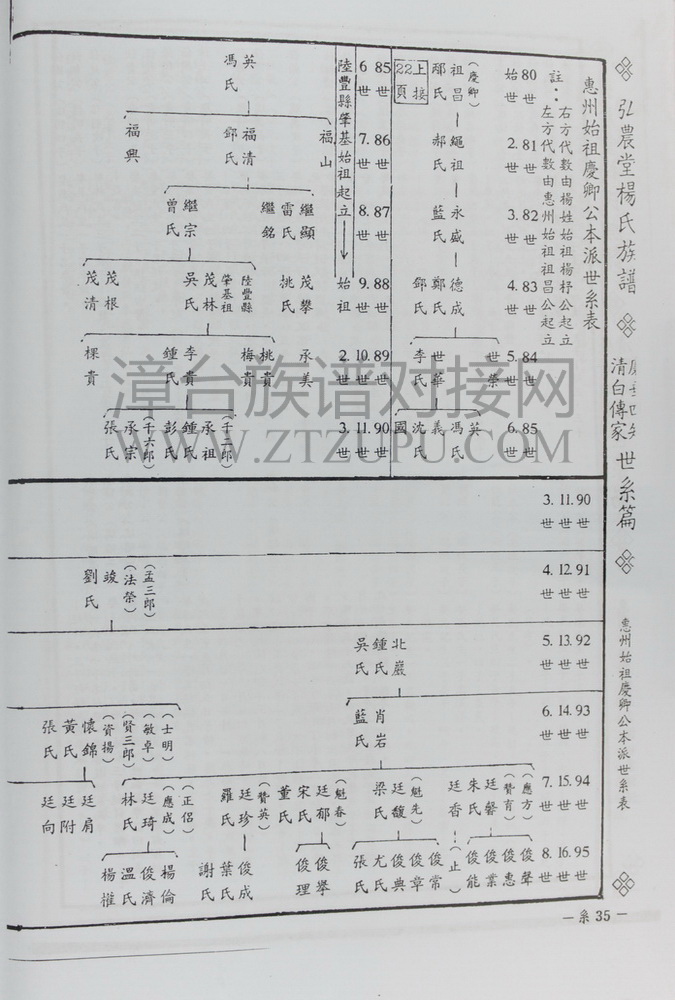 弘農堂楊氏族譜
清白傳家
世系篇
惠州始祖慶卿公本派世系表
系 35
惠州始祖慶卿公本派世系表
註：右方代數由楊姓始祖楊杼公起立
左方代數由惠州始祖祖昌公起立
80 世 始
81 世 2. 世
82 世 3. 世
83 世 4. 世
84 世 5. 世
85 世 6. 世
上接22頁
(慶卿)
祖昌 鄢氏
繩祖 郝氏
永盛 藍氏
德成 鄭氏 鄧氏
世榮
世華 李氏
英 馮氏
義 沈氏
國
85 世 6 世
86 世 7. 世
87 世 8. 世
88 世 9. 世 始祖
89 世 10. 世 2. 世
90 世 11. 世 3. 世
陸豐縣肇基始祖起立
英 馮氏
福山
福清 鄧氏
福興
繼顯 雷氏
繼銘
繼宗 曾氏
茂攀 姚氏
陸豐縣肇基祖
茂林 吳氏
茂根
茂清
承美
桃貴
梅貴
李貴 鍾氏
棵貴
(千二郎)
承祖 鍾氏 彭氏
(千六郎)
承宗 張氏
90 世 11. 世 3. 世
91 世 12. 世 4. 世
92 世 13. 世 5. 世
93 世 14. 世 6. 世
94 世 15. 世 7. 世
95 世 16. 世 8. 世
(孟三郎)
(法榮)
竣 劉氏
北巖 鍾氏 吳氏
肖岩 藍氏
(士明)
(敏卓)
(賢三郎)
(資揚)
懷錦 黃氏 張氏
(應方)
(贊育)
廷馨 朱氏
廷香
(止)
(魁先)
廷馥 梁氏
(魁春)
廷郁 宋氏 董氏
(贊英)
廷珍 羅氏
(正侶)
(應成)
廷琦 林氏
廷肩
廷附
廷向
俊聲
俊惠
俊業
俊能
俊常
俊章
俊典 尤氏 張氏
俊舉
俊理
俊成 葉氏 謝氏
楊倫
俊濟 溫氏
楊權
漳台族谱对接网
WWW.ZTZUPU.COM